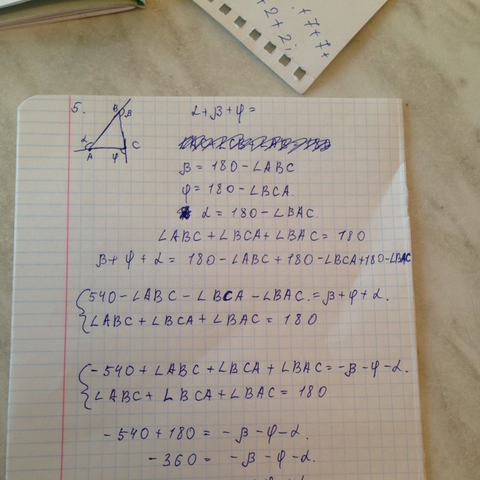 +7+7+
+2+2i
5.
B β
α
A φ C
α+β+φ=
β = 180 - ∠ABC
φ = 180 - ∠BCA
α = 180 - ∠BAC.
∠ABC + ∠BCA + ∠BAC = 180
β + φ + α = 180 - ∠ABC + 180 - ∠BCA + 180 - ∠BAC
540 - ∠ABC - ∠BCA - ∠BAC. = β + φ + α.
∠ABC + ∠BCA + ∠BAC = 180
-540 + ∠ABC + ∠BCA + ∠BAC = -β - φ - α.
∠ABC + ∠BCA + ∠BAC = 180
-540 + 180 = -β - φ - α.
-360 = -β - φ - α.